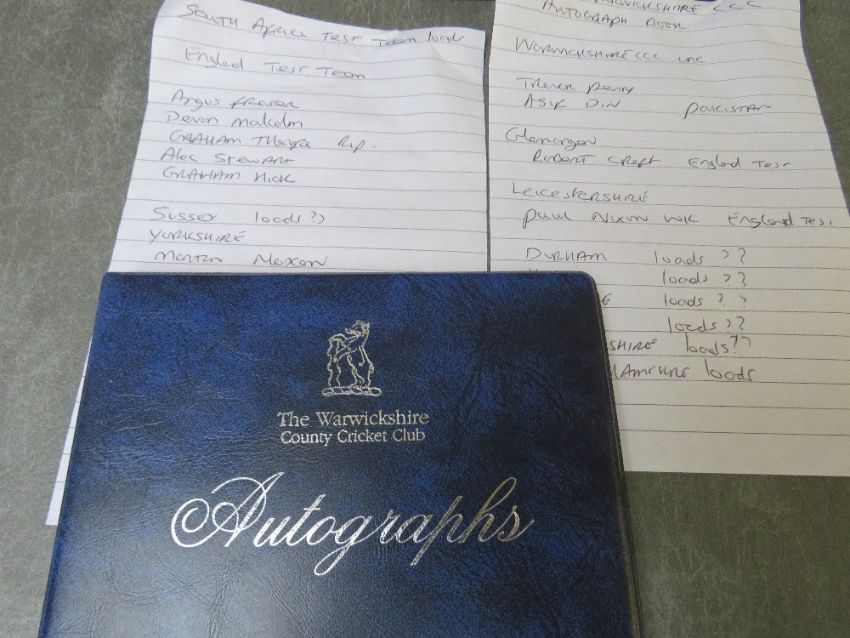 South Africa Test Team loads
Englad Test Team
Angus Fraser
Devon Malcolm
GRAHAM Thorpe Rip.
Alec Stewart
GRAHAM HICK
Sussex loads ??
YORKSHIRE
Martin Moxon
WARWICKSHIRE C C C
AUTOGRAPH BOOK
WARWICKSHIRE CCC
Trevor Penny
ASIF DIN PAKISTAN
Glamorgan
Robert Croft Englad Test
LEICESTERSHIRE
PAUL NIXON WK ENGLAND TEST
DURHAM loads ??
loads ??
loads ??
loads ??
SHIRE loads ??
loads
The Warwickshire
County Cricket Club
Autographs